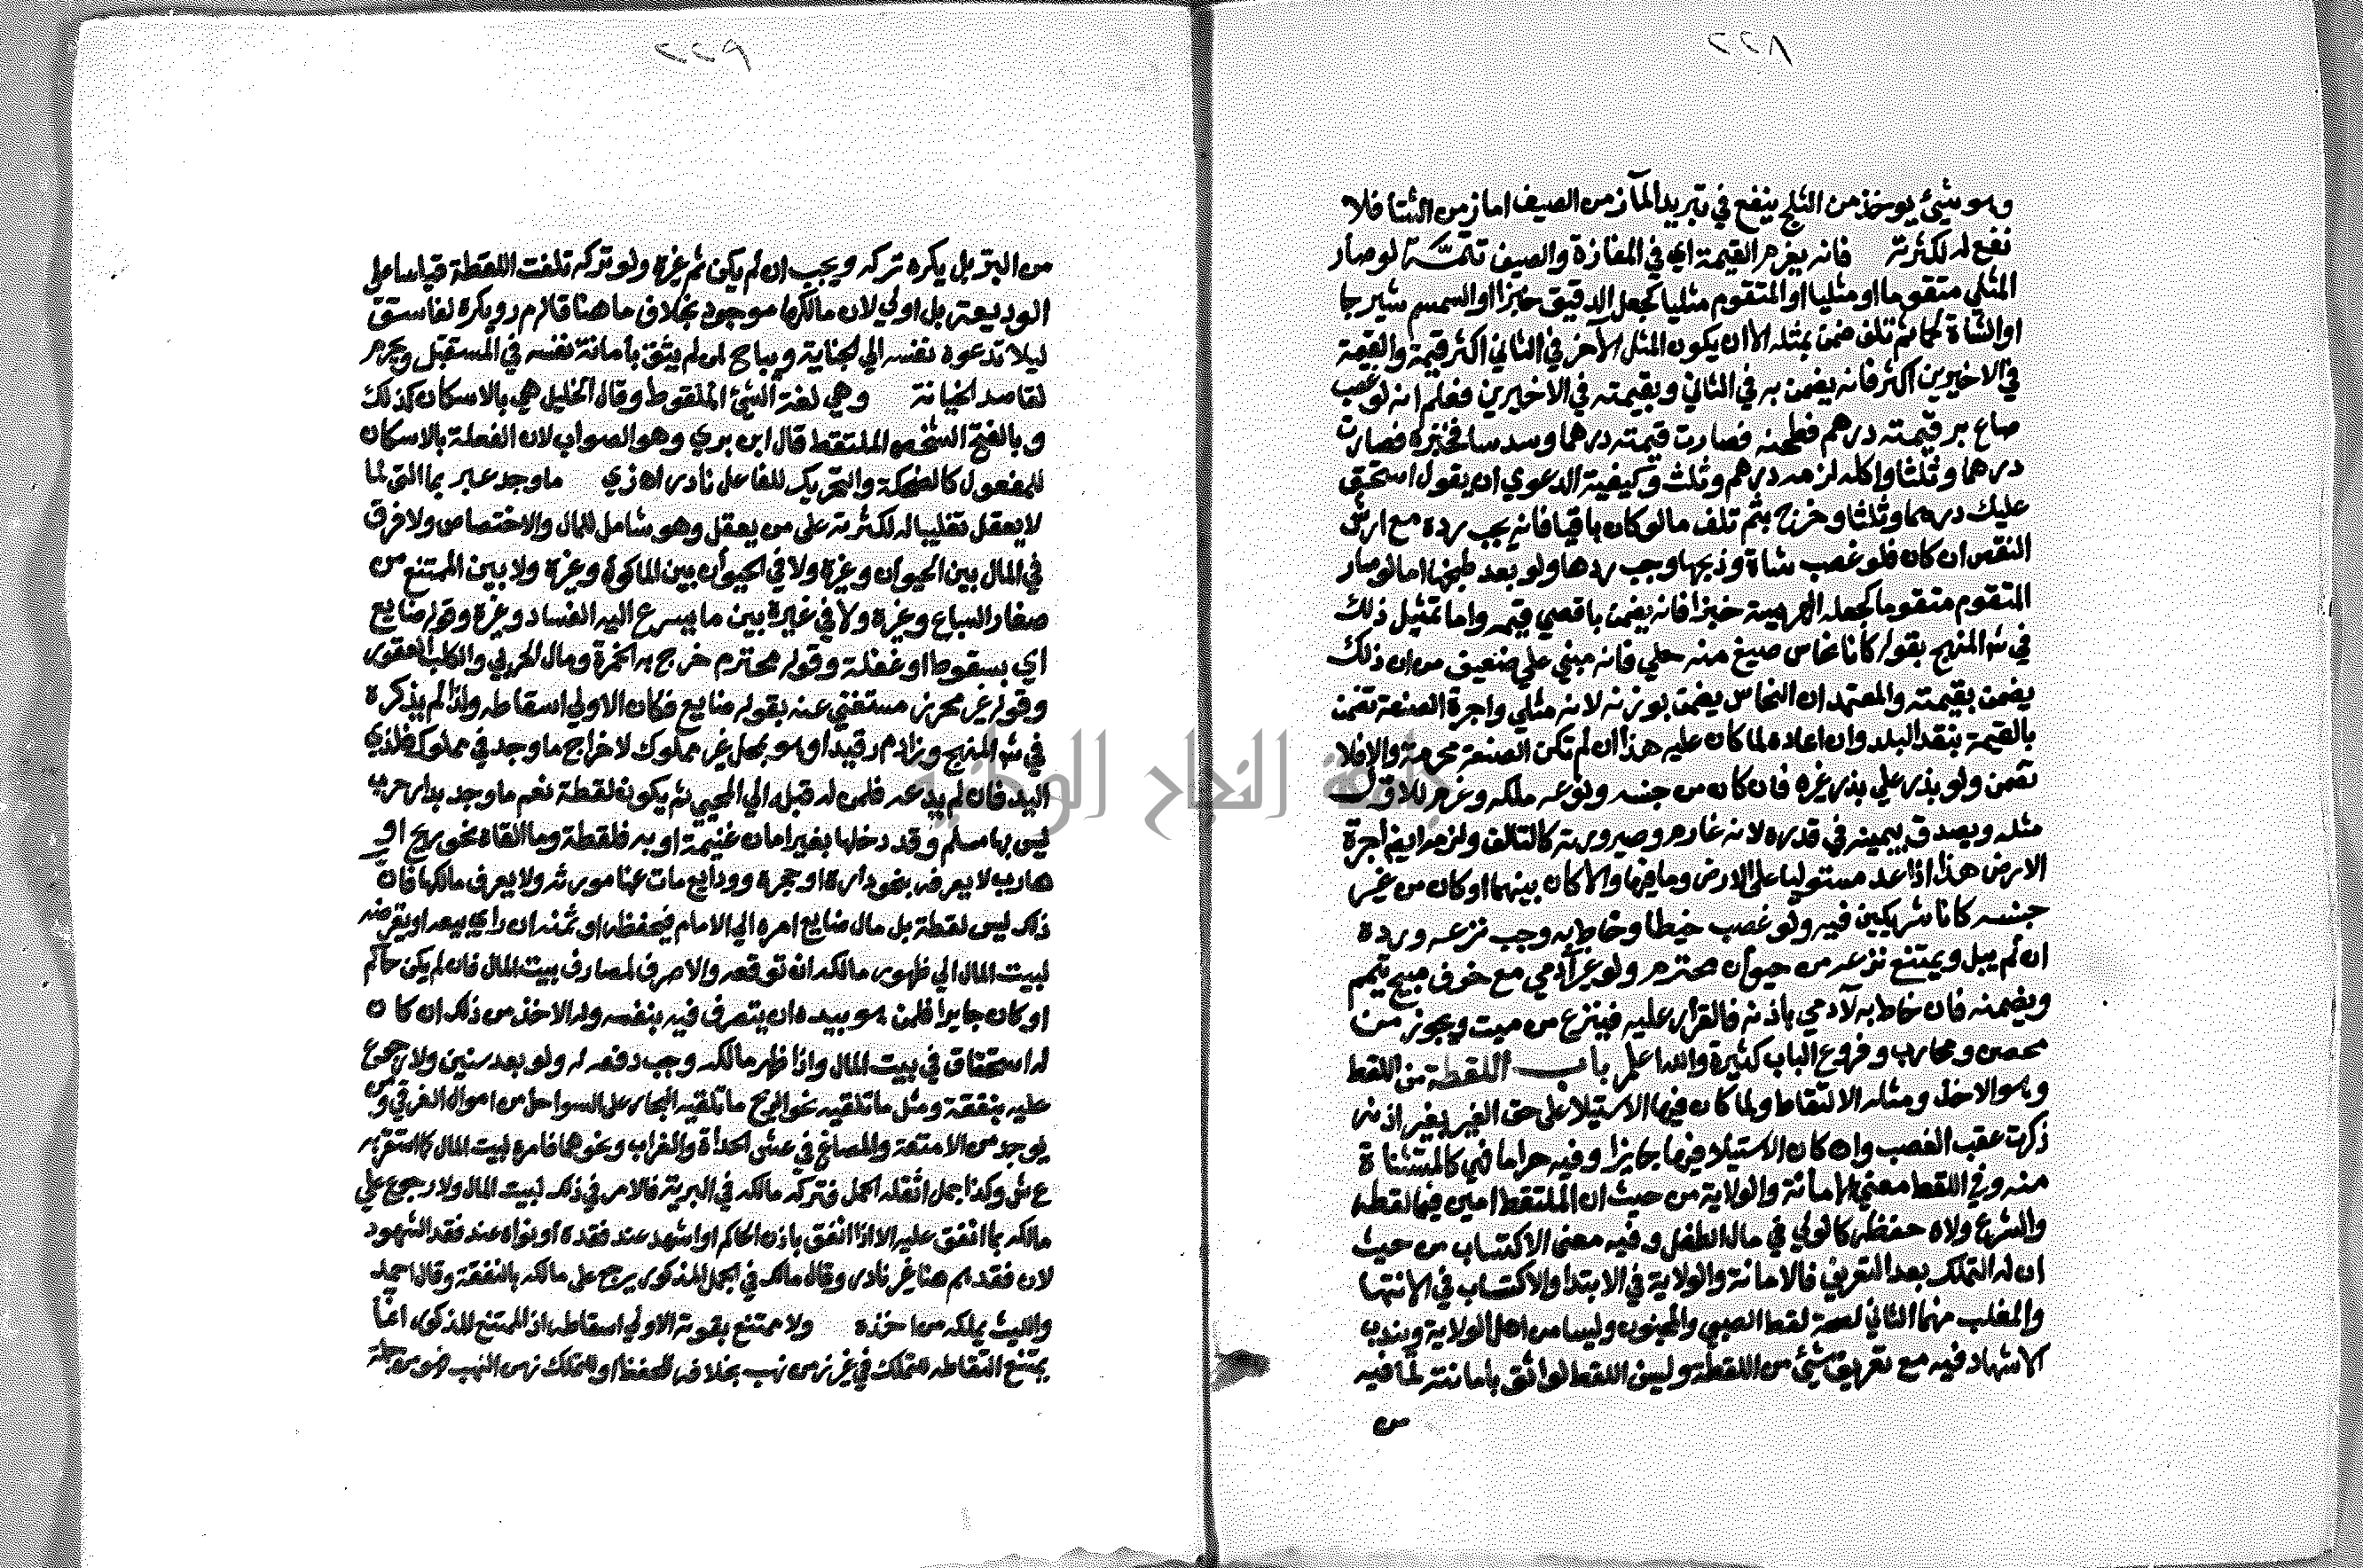 ٨٢٢
وهو شيئ يوخذ من الثلج ينفع في تبريد المآ زمن الصيف اما زمن الشتا فلا
نفع له لكثرته فانه يغرم القيمة اي في المفازة والصيف تتمـــة لو صار
المثلي متقوما او مثليا او المتقوم مثليا كجعل الدقيق خبزا او السمسم شيرجا
او الشاة لحما ثم تلف ضمن بمثله الا ان يكون المثل الآخر في الثاني اكثر قيمة والقيمة
في الاخيرين اكثر فانه يضمن به في الثاني وبقيمته في الاخيرين فعلم انه لو غصب
صاع بر قيمته درهم فطحنه فصارت قيمته درهما وسدسا فخبزه فصارت
درهما وثلثا واكله لزمه درهم وثلث وكيفية الدعوي ان يقول استحق
عليك درهما وثلثا وخرج بثم تلف ما لو كان باقيا فانه يجب رده مع ارش
النقص ان كان فلو غصب شاة وذبحها وجب ردها ولو بعد طبخها اما لو صار
المتقوم متقوما كجعله الهريسة خبزا فانه يضمن باقصي قيمه واما تمثيل ذلك
في ش المنهج بقوله كاناء نحاس صيغ منه حلي فانه مبني علي ضعيف من ان ذلك
يضمن بقيمته والمعتمد ان النحاس يضمن بوزنه لانه مثلي واجرة الصنعة تضمن
بالقيمة بنقد البلد وان اعاده لما كان عليه هذا ان لم تكن الصنعة محرمة والا فلا
تضمن ولو بذر علي بذر غيره فان كان من جنسه ونوعه ملكه وغرم للاول
مثله ويصدق بيمينه في قدره لانه غارم وصيرورته كالتالف ولزمه ايضا اجرة
الارض هذا اذا عد مستوليا على الارض وما فيها والا كان بينهما او كان من غير
جنسه كانا شريكين فيه ولو غصب خيطا وخاط به وجب نزعه ورده
ان لم يبل ويمتنع نزعه من حيوان محترم ولو غير آدمي مع خوف مبيح تيمم
ويضمنه فان خاط به لآدمي باذنه فالقرار عليه فينزع من ميت ويجوز من
محصن ومحارب وفروع الباب كثيرة والله اعلم باب اللقطة من اللقط
وهو الاخذ ومثله الالتقاط ولما كان فيها الاستيلا على حق الغير بغير اذنه
ذكرت عقب الغصب وان كان الاستيلا فيها جايزا وفيه حراما فهي كالمستثناة
منه وفي اللقط معني الامانة والولاية من حيث ان الملتقط امين فيما لقطه
والشرع ولاه حفظه كالولي في مال الطفل وفيه معنى الاكتساب من حيث
ان له التملك بعد التعريف فالامانة والولاية في الابتدا والاكتساب في الانتها
والمغلب منهما الثاني لصحة لقط الصبي والمجنون وليسا من اهل الولاية ويندب
الاشهاد فيه مع تعريف شيئ من اللقطة وليسن اللقط لواثق بامانته لما فيه
من
٢٢٩
من البر بل يكره تركه ويجب ان لم يكن ثم غيره ولو تركه تلفت اللقطة قياسا على
الوديعة بل اولي لان مالكها موجود بخلاف ما هنا قاله م ر ويكره لفاسق
ليلا تدعوه نفسه الي الخيانة ويباح لمن لم يثق بامانة نفسه في المستقبل ويحرم
لقاصد الخيانة وهي لغة الشيئ الملقوط وقال الخليل هي بالاسكان كذلك
وبالفتح الشخص الملتقط قال ابن بري وهو الصواب لان الفعلة بالاسكان
للمفعول كالضحكة والتحريك للفاعل نادر اه زي ما وجد عبر بما التي لما
لا يعقل تغليبا له لكثرته على من يعقل وهو شامل للمال والاختصاص ولا فرق
في المال بين الحيوان وغيره ولا في الحيوان بين الماكول وغيره ولا بين الممتنع من
صغار السباع وغيره ولا في غيره بين ما يسرع اليه الفساد وغيره وقوله ضايع
اي بسقوط او غفلة وقوله محترم خرج به الخمرة ومال الحربي والكلب العقور
وقوله غير محرز مستغني عنه بقوله ضايع فكان الاولي اسقاطه ولذا لم يذكره
في ش المنهج وزاد م ر قيدا وهو بمحل غير مملوك لاخراج ما وجد في مملوك فلذي
اليد فان لم يدعه فلمن له قبله الي المحيي ثم يكون لقطة نعم ما وجد بدار حرب
ليس بها مسلم وقد دخلها بغير امان غنيمة او به فلقطة وما القاه نحو ريح او
هارب لا يعرفه بنحو داره او حجره وودايع مات عنها مورثه ولا يعرف مالكها فان
ذلك ليس لقطة بل مال ضايع امره الي الامام فيحفظه او ثمنه ان راي بيعه او يقرضه
لبيت المال الي ظهور مالكه ان توقعه والا صرف لمصارف بيت المال فان لم يكن حاكم
او كان جايرا فلمن هو بيده ان يتصرف فيه بنفسه وله الاخذ من ذلك ان كان
له استحقاق في بيت المال واذا ظهر مالكه وجب دفعه له ولو بعد سنين ولا رجوع
عليه بنفقة ومثل ما تلقيه نحو الريح ما تلقيه البحار على السواحل من اموال الغرقي وما
يوجد من الامتعة والمصاغ في عش الحدأة والغراب ونحوهما فامره لبيت المال كما استقر به
ع ش وكذا جمل اثقله الحمل فتركه مالكه في البرية فالامر في ذلك لبيت المال ولا رجوع علي
مالكه بما انفق عليه الا اذا انفق باذن الحاكم او اشهد عند فقده او نواه عند فقد الشهود
لان فقدهم هنا غير نادر وقال مالك في الجمل المذكور يرجع على مالكه بالنفقة وقال احمد
والليث يملكه من اخذه ولا ممتنع بقوته الاولي اسقاطه اذ الممتنع المذكور انما
يمتنع التقاطه للتملك في غير زمن نهب بخلافه للحفظ او للتملك زمن النهب فهو من جملة